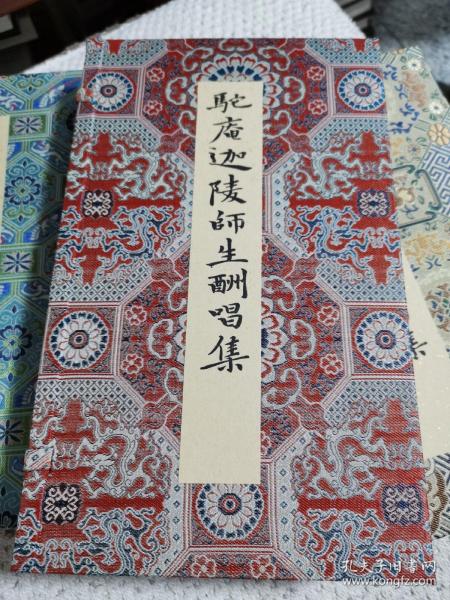 駝庵迦陵師生酬唱集
集
孔夫子旧书网
www.kongfz.com